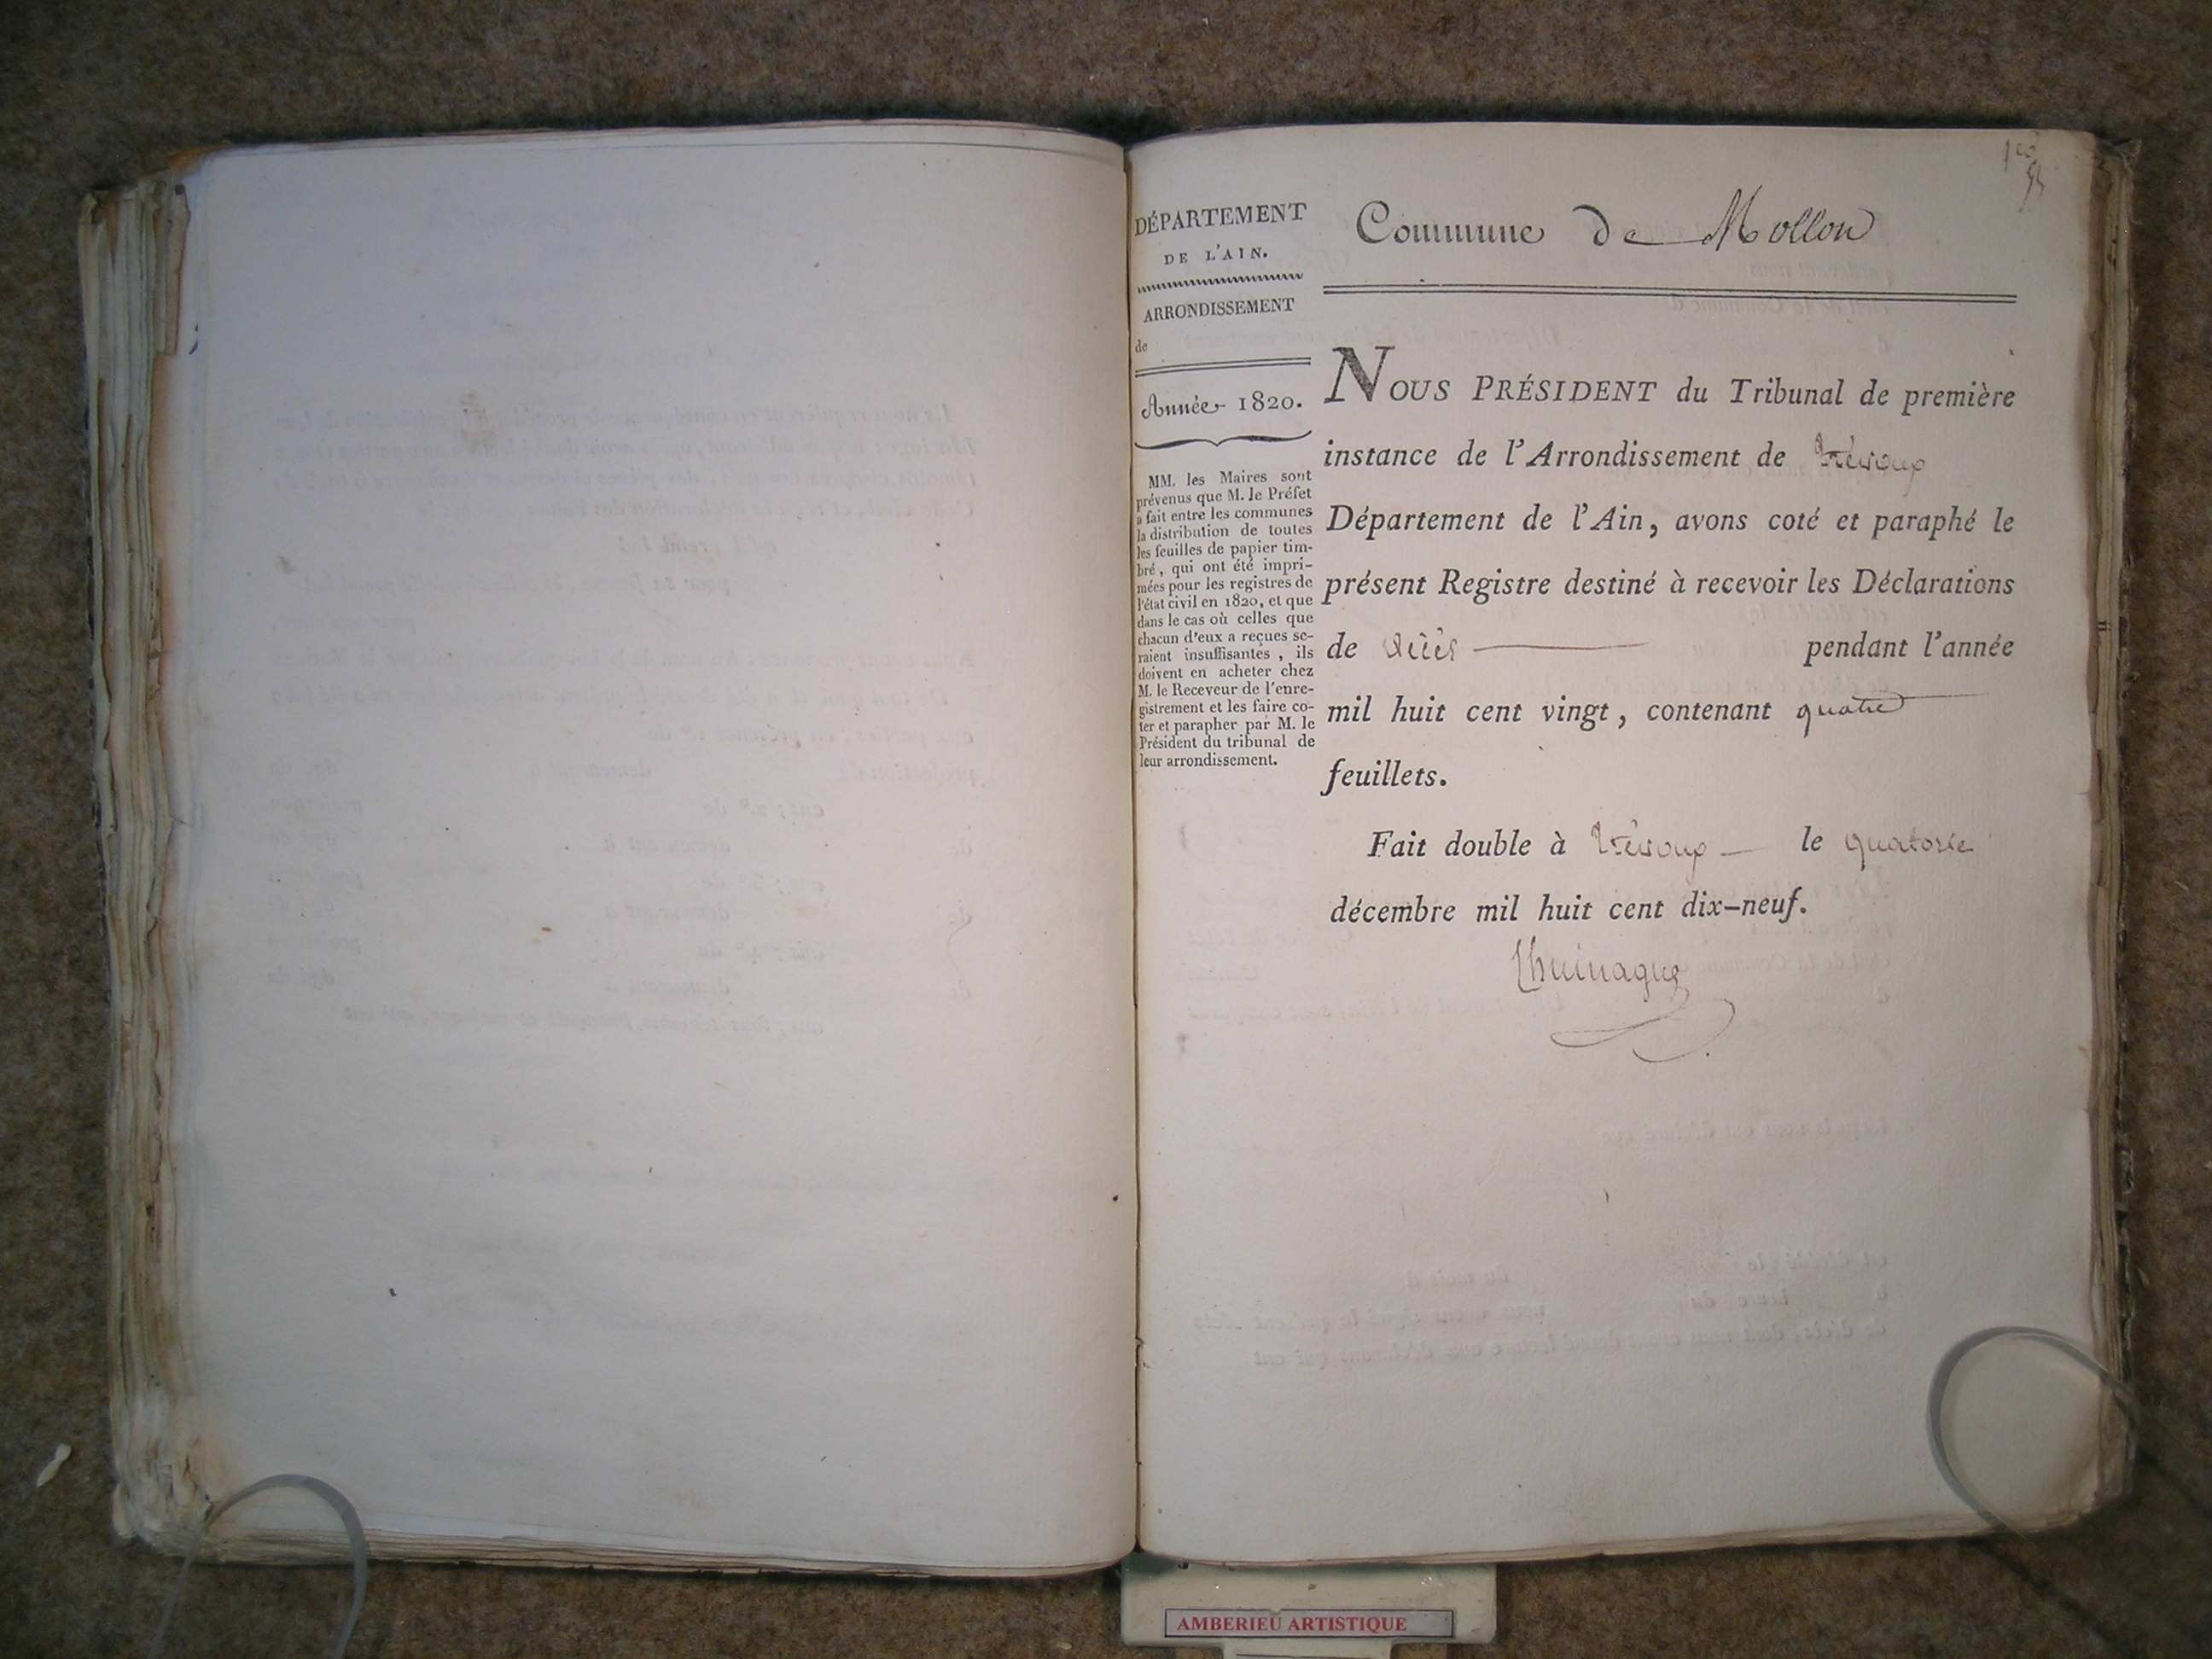 DÉPARTEMENT
DE L'AIN.
ARRONDISSEMENT
de
Année 1820.
MM. les Maires sont
prévenus que M. le Préfet
a fait entre les communes
la distribution de toutes
les feuilles de papier tim-
bré, qui ont été impri-
mées pour les registres de
l'état civil en 1820, et que
dans le cas où celles que
chacun d'eux a reçues se-
raient insuffisantes, ils
doivent en acheter chez
M. le Receveur de l'enre-
gistrement et les faire co-
ter et parapher par M. le
Président du tribunal de
leur arrondissement.
Commune de Mollon
NOUS PRÉSIDENT du Tribunal de première
instance de l'Arrondissement de Trévoux
Département de l'Ain, avons coté et paraphé le
présent Registre destiné à recevoir les Déclarations
de décès pendant l'année
mil huit cent vingt, contenant quatre
feuillets.
Fait double à Trévoux le quatorze
décembre mil huit cent dix-neuf.
AMBERIEU ARTISTIQUE